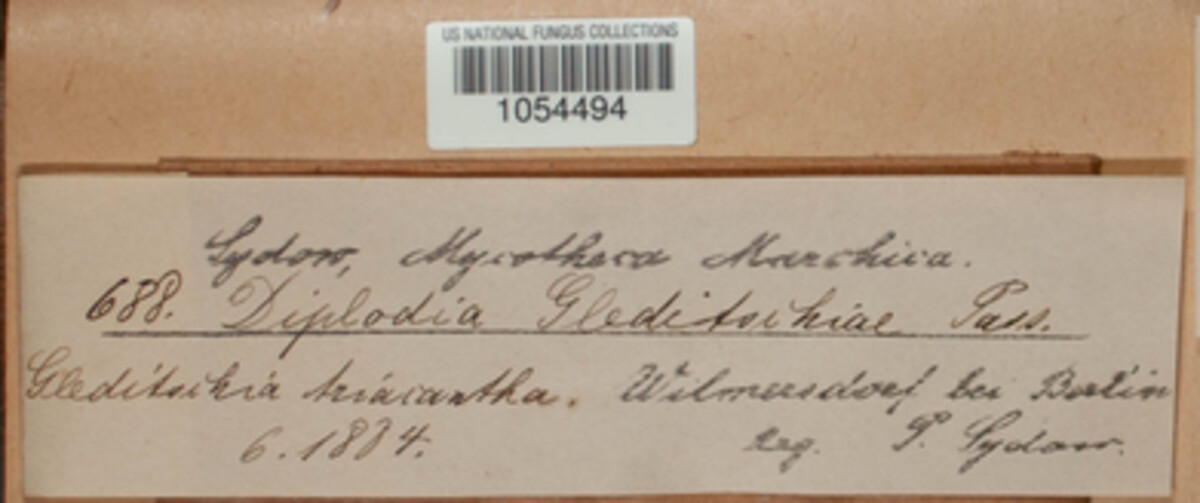 US NATIONAL FUNGUS COLLECTIONS
1054494
Sydow, Mycotheca Marchica.
688. Diplodia Gleditschiae Pass.
Gleditschia triacantha. Wilmersdorf bei Berlin
6. 1884. leg. P. Sydow.